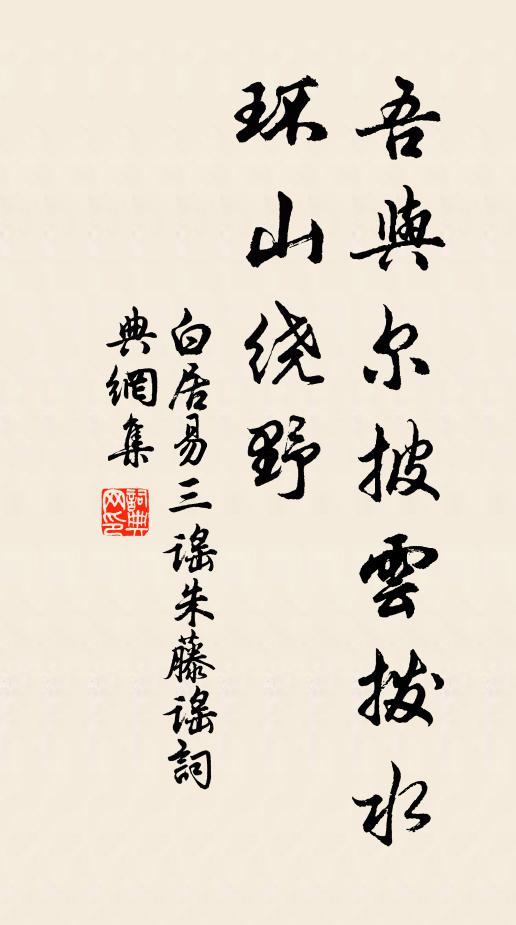 吾與尔披雲拨水
环山绕野
白居易三谣朱藤谣詞
典網集
詞典網印